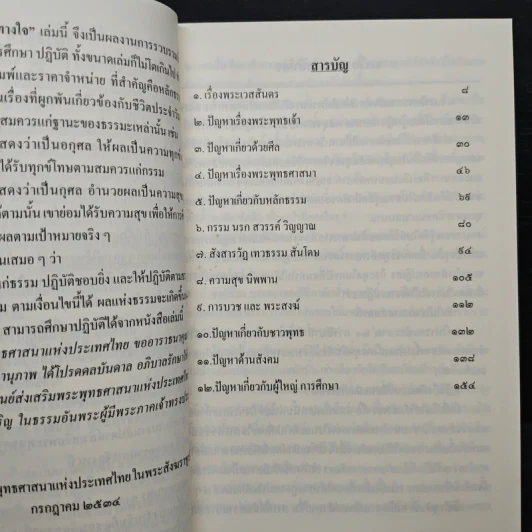 ทางใจ” เล่มนี้ จึงเป็นผลงานการรวบรวม
ศึกษา ปฏิบัติ ทั้งขนาดเล่มก็ไม่โตเกินไป
พิมพ์และราคาจำหน่าย ที่สำคัญคือหลักธรรม
เรื่องที่ผูกพันเกี่ยวข้องกับชีวิตประจำวัน
สมควรแก่ฐานะของธรรมะเหล่านั้น เช่น
แสดงว่าเป็นอกุศล ให้ผลเป็นความทุกข์
ได้รับทุกข์โทษตามสมควรแก่กรรม
แสดงว่าเป็นกุศล อำนวยผลเป็นความสุข
ตามนั้น เขาย่อมได้รับความสุข เพื่อให้การ
ผลตามเป้าหมายจริง ๆ
นเสมอ ๆ ว่า
แก่ธรรม ปฏิบัติชอบยิ่ง และให้ปฏิบัติตาม
ม ตามเงื่อนไขนี้ได้ ผลแห่งธรรมจะเกิดขึ้น
สามารถศึกษาปฏิบัติได้จากหนังสือเล่มนี้
ธศาสนาแห่งประเทศไทย ขออาราธนาคุณ
านุภาพ ได้โปรดดลบันดาล อภิบาลรักษา
นย์ส่งเสริมพระพุทธศาสนาแห่งประเทศไทย
ริญ ในธรรมอันพระผู้มีพระภาคเจ้าทรง
พุทธศาสนาแห่งประเทศไทย ในพระสังฆราชู
กรกฎาคม ๒๕๓๔
สารบัญ
๑. เรื่องพระเวสสันดร ๘
๒. ปัญหาเรื่องพระพุทธเจ้า ๑๓
๓. ปัญหาเกี่ยวด้วยศีล ๓๐
๔. ปัญหาเรื่องพระพุทธศาสนา ๔๖
๕. ปัญหาเกี่ยวกับหลักธรรม ๖๙
๖. กรรม นรก สวรรค์ วิญญาณ ๘๐
๗. สังสารวัฏ เทวธรรม สันโดษ ๙๔
๘. ความสุข นิพพาน ๑๐๕
๙. การบวช และ พระสงฆ์ ๑๑๒
๑๐.ปัญหาเกี่ยวกับชาวพุทธ ๑๓๒
๑๑.ปัญหาด้านสังคม ๑๓๘
๑๒.ปัญหาเกี่ยวกับผู้ใหญ่ การศึกษา ๑๕๔